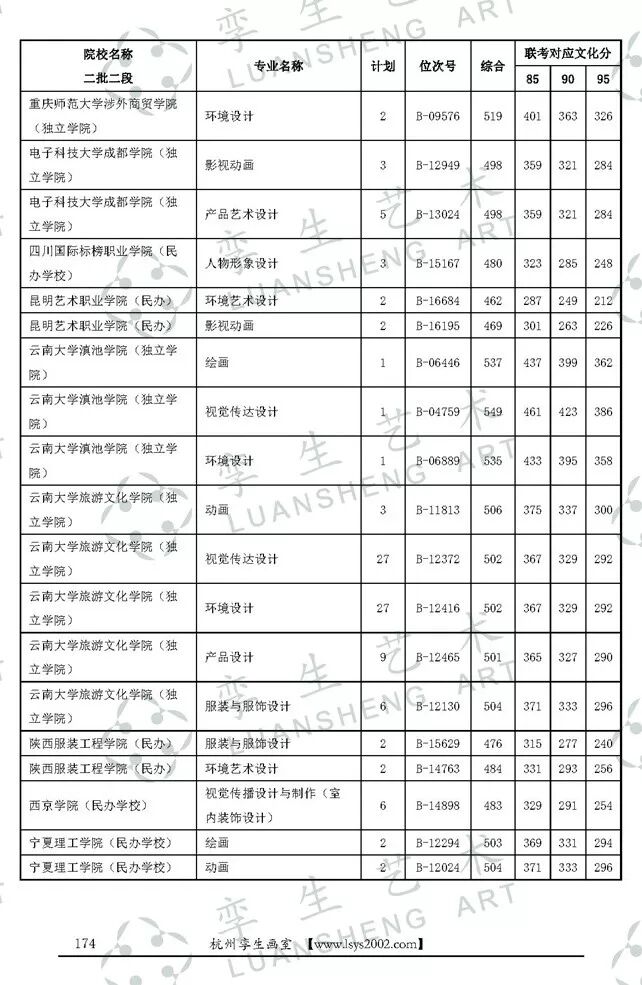 院校名称 专业名称 计划 位次号 综合 联考对应文化分
二批二段 85 90 95
重庆师范大学涉外商贸学院
（独立学院） 环境设计 2 B-09576 519 401 363 326
电子科技大学成都学院（独
立学院） 影视动画 3 B-12949 498 359 321 284
电子科技大学成都学院（独
立学院） 产品艺术设计 5 B-13024 498 359 321 284
四川国际标榜职业学院（民
办学校） 人物形象设计 3 B-15167 480 323 285 248
昆明艺术职业学院（民办） 环境艺术设计 2 B-16684 462 287 249 212
昆明艺术职业学院（民办） 影视动画 2 B-16195 469 301 263 226
云南大学滇池学院（独立学
院） 绘画 1 B-06446 537 437 399 362
云南大学滇池学院（独立学
院） 视觉传达设计 1 B-04759 549 461 423 386
云南大学滇池学院（独立学
院） 环境设计 1 B-06889 535 433 395 358
云南大学旅游文化学院（独
立学院） 动画 3 B-11813 506 375 337 300
云南大学旅游文化学院（独
立学院） 视觉传达设计 27 B-12372 502 367 329 292
云南大学旅游文化学院（独
立学院） 环境设计 27 B-12416 502 367 329 292
云南大学旅游文化学院（独
立学院） 产品设计 9 B-12465 501 365 327 290
云南大学旅游文化学院（独
立学院） 服装与服饰设计 6 B-12130 504 371 333 296
陕西服装工程学院（民办） 服装与服饰设计 2 B-15629 476 315 277 240
陕西服装工程学院（民办） 环境艺术设计 2 B-14763 484 331 293 256
西京学院（民办学校） 视觉传播设计与制作（室
内装饰设计） 6 B-14898 483 329 291 254
宁夏理工学院（民办学校） 绘画 2 B-12294 503 369 331 294
宁夏理工学院（民办学校） 动画 2 B-12024 504 371 333 296
174 杭州孪生画室 【www.lsys2002.com】
孪生艺术
LUANSHENG ART